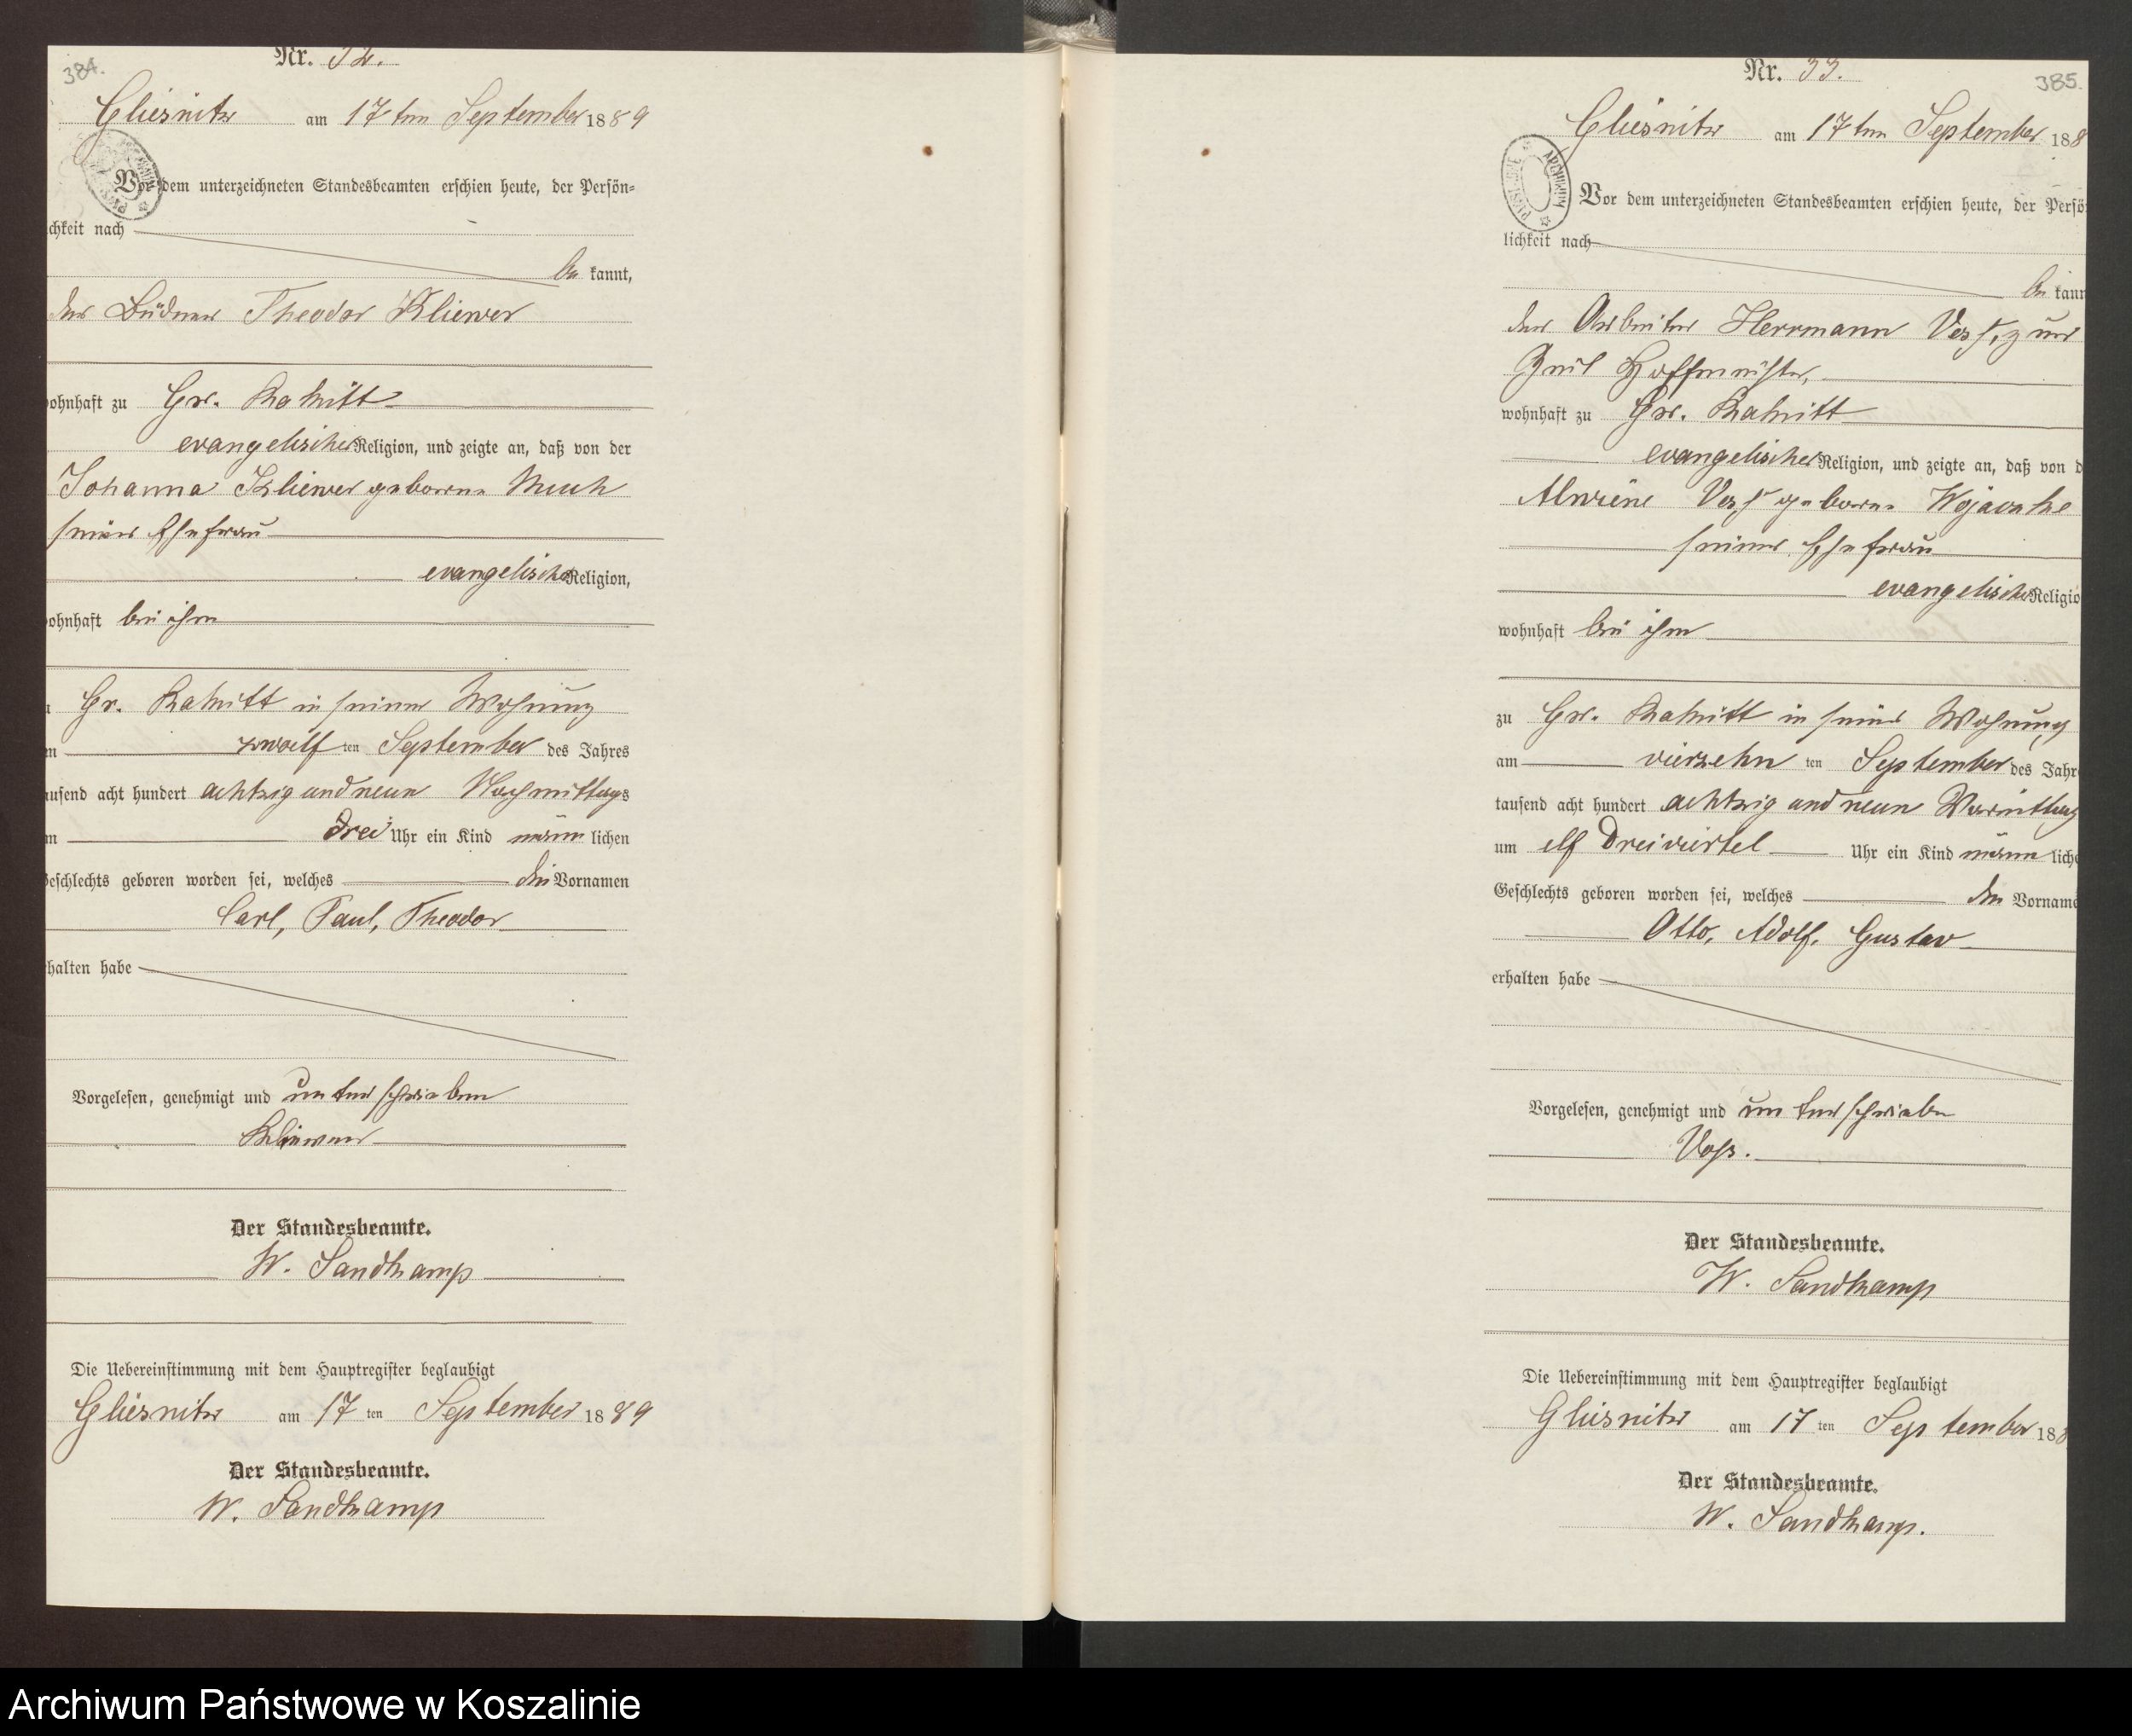 384.
Nr. 32.
Gliesnitz am 17ten September 1889
Vor dem unterzeichneten Standesbeamten erschien heute, der Persön-
chkeit nach
be kannt,
der Büdner Theodor Kliewer
ohnhaft zu Gr. Katnitt
evangelischer Religion, und zeigte an, daß von der
Johanna Kliewer geborene Much
seiner Ehefrau
evangelischer Religion,
ohnhaft bei ihm
Gr. Katnitt in seiner Wohnung
m zwölf ten September des Jahres
usend acht hundert achtzig und neun Nachmittags
m drei Uhr ein Kind männ lichen
Geschlechts geboren worden sei, welches die Vornamen
Carl, Paul, Theodor
halten habe
Vorgelesen, genehmigt und unterschrieben
Kliewer
Der Standesbeamte.
W. Sandkamp
Die Uebereinstimmung mit dem Hauptregister beglaubigt
Gliesnitz am 17 ten September 1889
Der Standesbeamte.
W. Sandkamp
385.
Nr. 33.
Gliesnitz am 17ten September 188
ARCHIWUM
Vor dem unterzeichneten Standesbeamten erschien heute, der Persö
lichkeit nach
be kann
der Arbeiter Herrmann Voß, zur
Zeit Hoffmeister,
wohnhaft zu Gr. Katnitt
evangelischer Religion, und zeigte an, daß von d
Alwine Voß geborene
seiner Ehefrau
evangelischer Religio
wohnhaft bei ihm
zu Gr. Katnitt in seiner Wohnung
am vierzehn ten September des Jahr
tausend acht hundert achtzig und neun Vormittag
um elf Dreiviertel Uhr ein Kind männ liche
Geschlechts geboren worden sei, welches den Vorname
Otto, Adolf, Gustav
erhalten habe
Vorgelesen, genehmigt und unterschrieben
Voß.
Der Standesbeamte.
W. Sandkamp
Die Uebereinstimmung mit dem Hauptregister beglaubigt
Gliesnitz am 17 ten September 188
Der Standesbeamte.
W. Sandkamp.
Archiwum Państwowe w Koszalinie